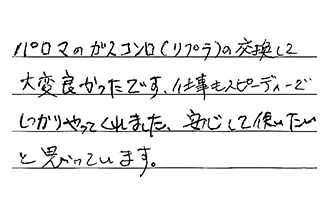 パロマのガスコンロ(リプラ)の交換して
大変良かったです、仕事もスピーディーで
しっかりやってくれました、安心して使いたい
と思っています。